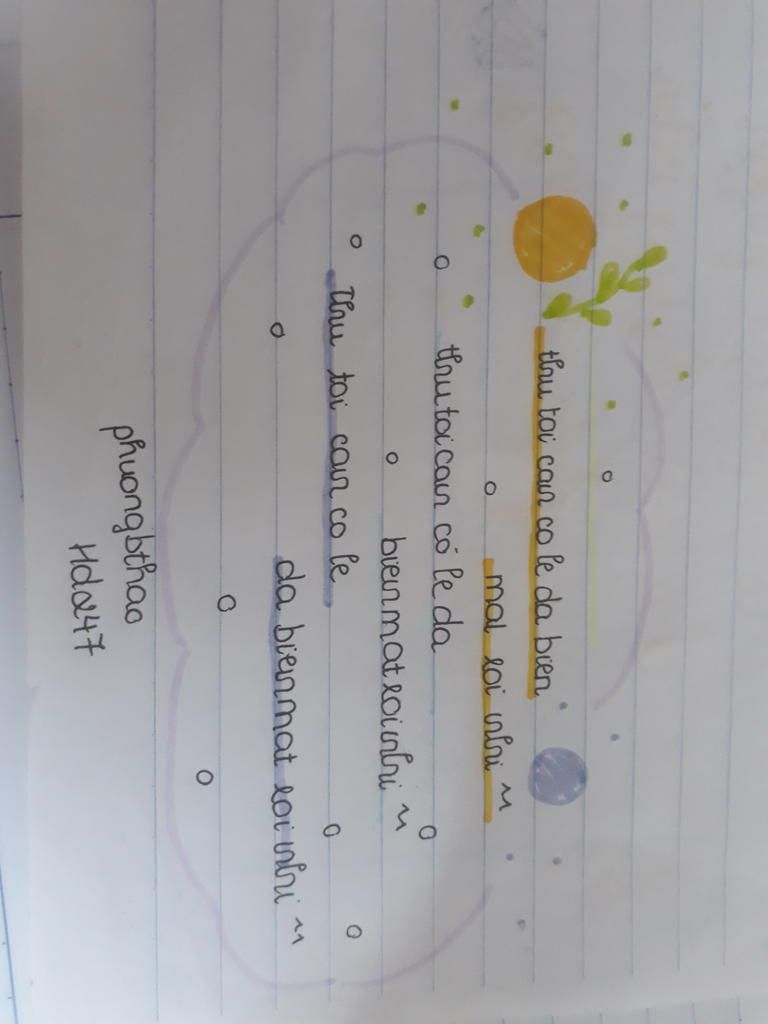 thu toi can co le da bien
mat roi nhi ~
thu toi can có le da
bien mat roi nhi ~
thu toi can co le
da bien mat roi nhi ~
phuongbthao
Hda247